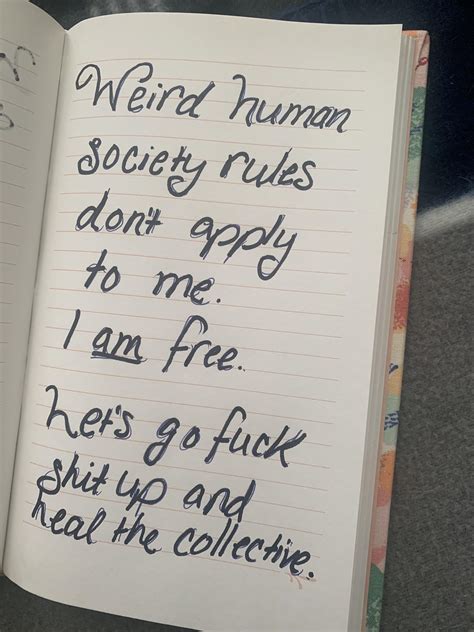 Weird human
society rules
don't apply
to me.
I am free.
Let's go fuck
shit up and
heal the collective.